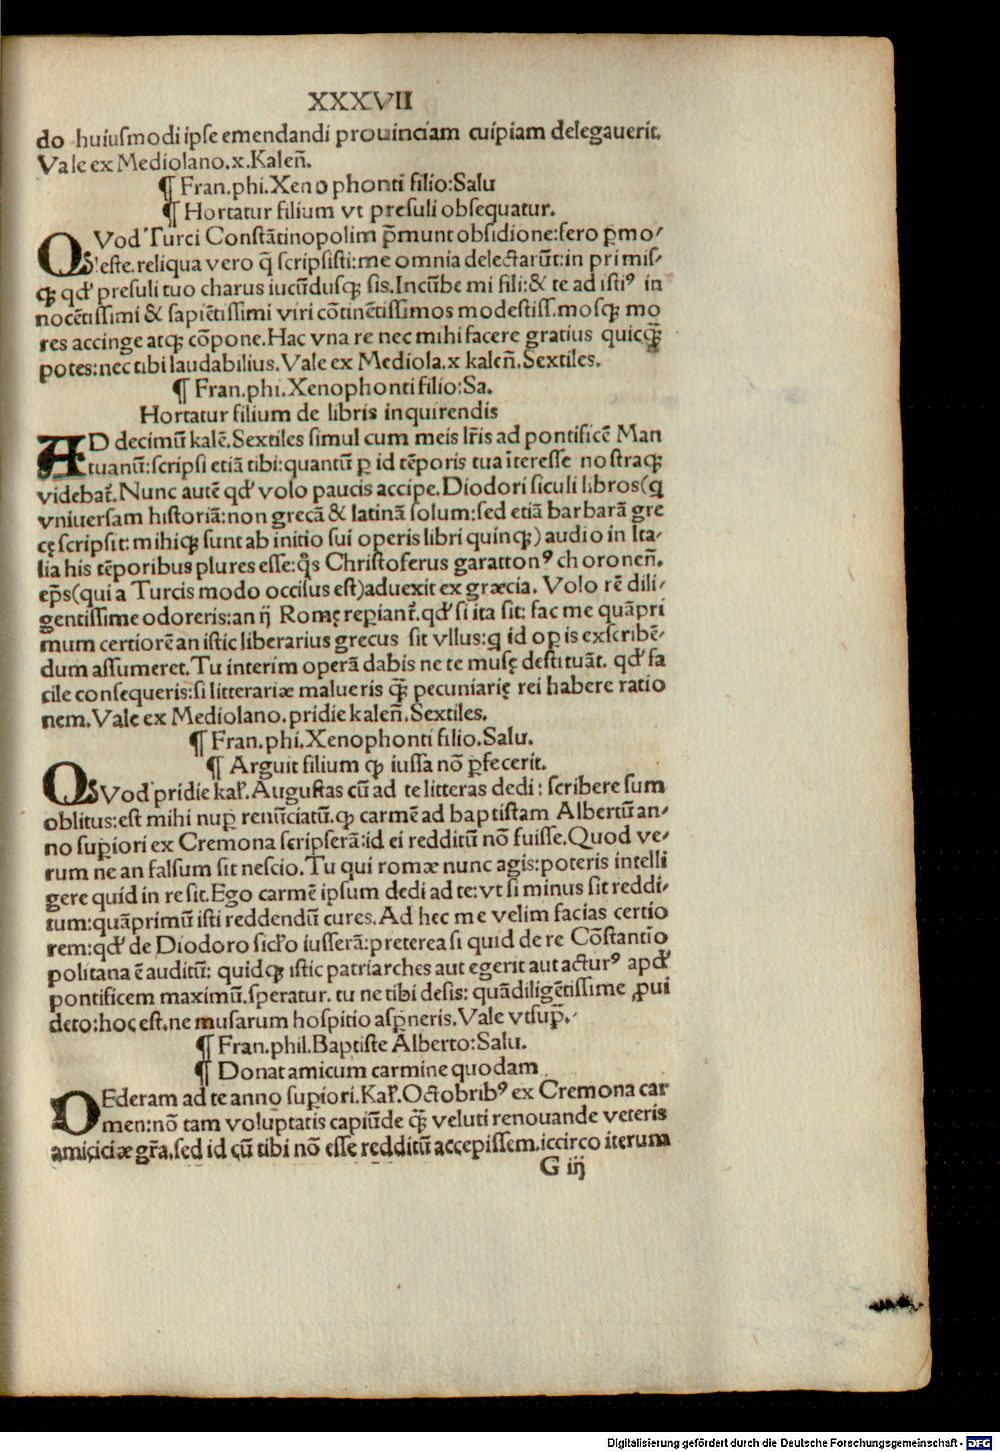 XXXVII
do huiuſmodi ipſe emendandi prouinciam cuipiam delegauerit.
Vale ex Mediolano.x.Kaleñ.
¶ Fran.phi.Xenophonti filio:Salu
¶ Hortatur filium vt preſuli obſequatur.
QVod Turci Conſtãtinopolim p̃munt obſidione:fero ꝑmo⸗
leſte.reliqua vero q̃ ſcripſiſti:me omnia delectarũt:in primiſ⸗
qꝫ qđ preſuli tuo charus iucũduſqꝫ ſis.Incũbe mi fili:& te ad iſtiꝰ in
nocẽtiſſimi & ſapiẽtiſſimi viri cõtinẽtiſſimos modeſtiſſ.moſqꝫ mo
res accinge atqꝫ cõpone.Hac vna re nec mihi facere gratius quicq̃ꝫ
potes:nec tibi laudabilius.Vale ex Mediola.x kaleñ.Sextiles.
¶ Fran.phi.Xenophonti filio:Sa.
Hortatur filium de libris inquirendis
AD decimũ kalẽ.Sextiles ſimul cum meis lr̃is ad pontificẽ Man
tuanũ:ſcripſi etiã tibi:quantũ ꝑ id tẽporis tua ĩtereſſe noſtraqꝫ
videbat᷑.Nunc autẽ qđ volo paucis accipe.Diodori ſiculi libros(q
vniuerſam hiſtoriã:non grecã & latinã ſolum:ſed etiã barbarã gre
cę ſcripſit:mihiqꝫ ſunt ab initio ſui operis libri quinqꝫ)audio in Ita⸗
lia his tẽporibus plures eſſe:q̊s Chriſtoferus garattonꝰ choroneñ.
ep̃s(qui a Turcis modo occiſus eſt)aduexit ex græcia. Volo rẽ dili⸗
gentiſſime odoreris:an ij Romę reperiant᷑.qđ ſi ita ſit: fac me quãpri
mum certiorẽ an iſtic liberarius grecus ſit vllus:q id oꝑis exſcribẽ⸗
dum aſſumeret.Tu interim operã dabis ne te muſę deſtituãt. qđ fa
cile conſequeris:ſi litterariæ malueris q̃ꝫ pecuniarię rei habere ratio
nem.Vale ex Mediolano.pridie kaleñ.Sextiles.
¶ Fran.phi.Xenophonti filio.Salu.
¶ Arguit filium qꝫ iuſſa nõ ꝑfecerit.
QVod pridie kal̃.Auguſtas cũ ad te litteras dedi: ſcribere ſum
oblitus:eſt mihi nuꝑ renũciatũ.qꝫ carmẽ ad baptiſtam Albertũ an⸗
no ſuꝑiori ex Cremona ſcripſerã:id ei redditũ nõ fuiſſe.Quod ve⸗
rum ne an falſum ſit neſcio.Tu qui romæ nunc agis:poteris intelli
gere quid in re ſit.Ego carmẽ ipſum dedi ad te:vt ſi minus ſit reddi⸗
tum:quãprimũ iſti reddendũ cures.Ad hec me velim facias certio
rem:qđ de Diodoro ſicl̃o iuſſerã:preterea ſi quid de re Cõſtantĩo
politana ẽ auditũ: quidqꝫ iſtic patriarches aut egerit aut acturꝰ apđ
pontificem maximũ.ſperatur. tu ne tibi deſis: quãdiligẽtiſſime ꝓui
deto:hoc eſt.ne muſarum hoſpitio aſꝑneris.Vale vtſup̃.
¶ Fran.phil.Baptiſte Alberto:Salu.
¶ Donat amicum carmine quodam
DEderam ad te anno ſuꝑiori.Kal̃.Octobribꝰ ex Cremona car
men:nõ tam voluptatis capiũde q̃ꝫ veluti renouande veteris
amiciciæ gr̃a.ſed id cũ tibi nõ eſſe redditũ accepiſſem.iccirco iterum
G iij
Digitalisierung gefördert durch die Deutsche Forschungsgemeinschaft - DFG